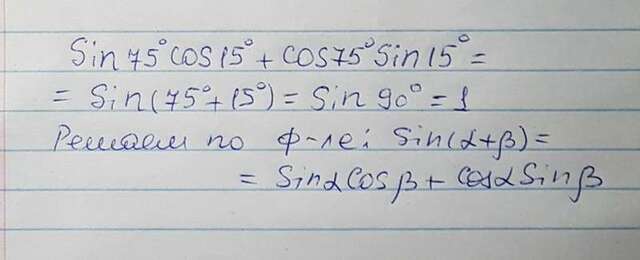 Sin 75° cos 15° + cos 75° Sin 15° =
= Sin (75° + 15°) = Sin 90° = 1
Решаем по ф-ле: Sin(α+β) =
= Sinα Cos β + Cosα Sin β